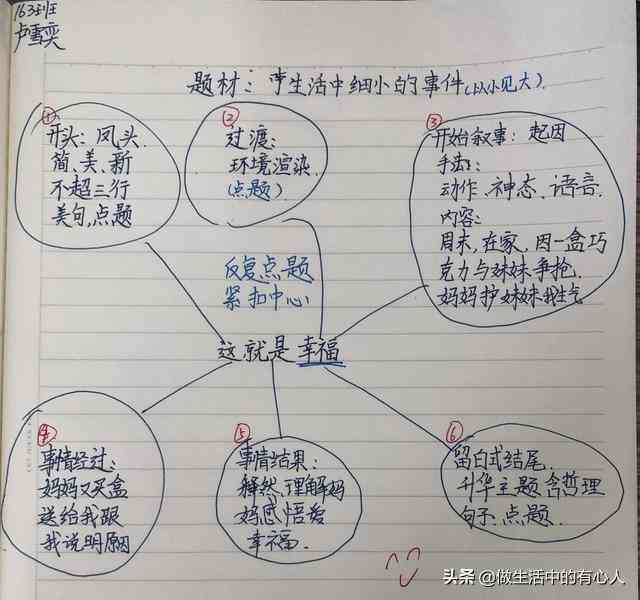 163班
卢雪奕
题材：生活中细小的事件(以小见大).
①
开头：凤头.
简、美、新
不超三行
美句，点题
②
过渡：
环境渲染
(点题)
③
开始叙事：起因
手法：
动作、神态、语言.
内容：
周末，在家，因一盒巧
克力与妹妹争抢，
妈妈护妹妹我生气
反复点题
紧扣中心
这就是幸福
④
事情经过：
妈妈又买盒
送给我跟
我说明原因
⑤
事情结果：
释然、理解妈
妈感悟爱
幸福.
⑥
留白式结尾.
升华主题含哲理
句子、点题.
头条 @做生活中的有心人